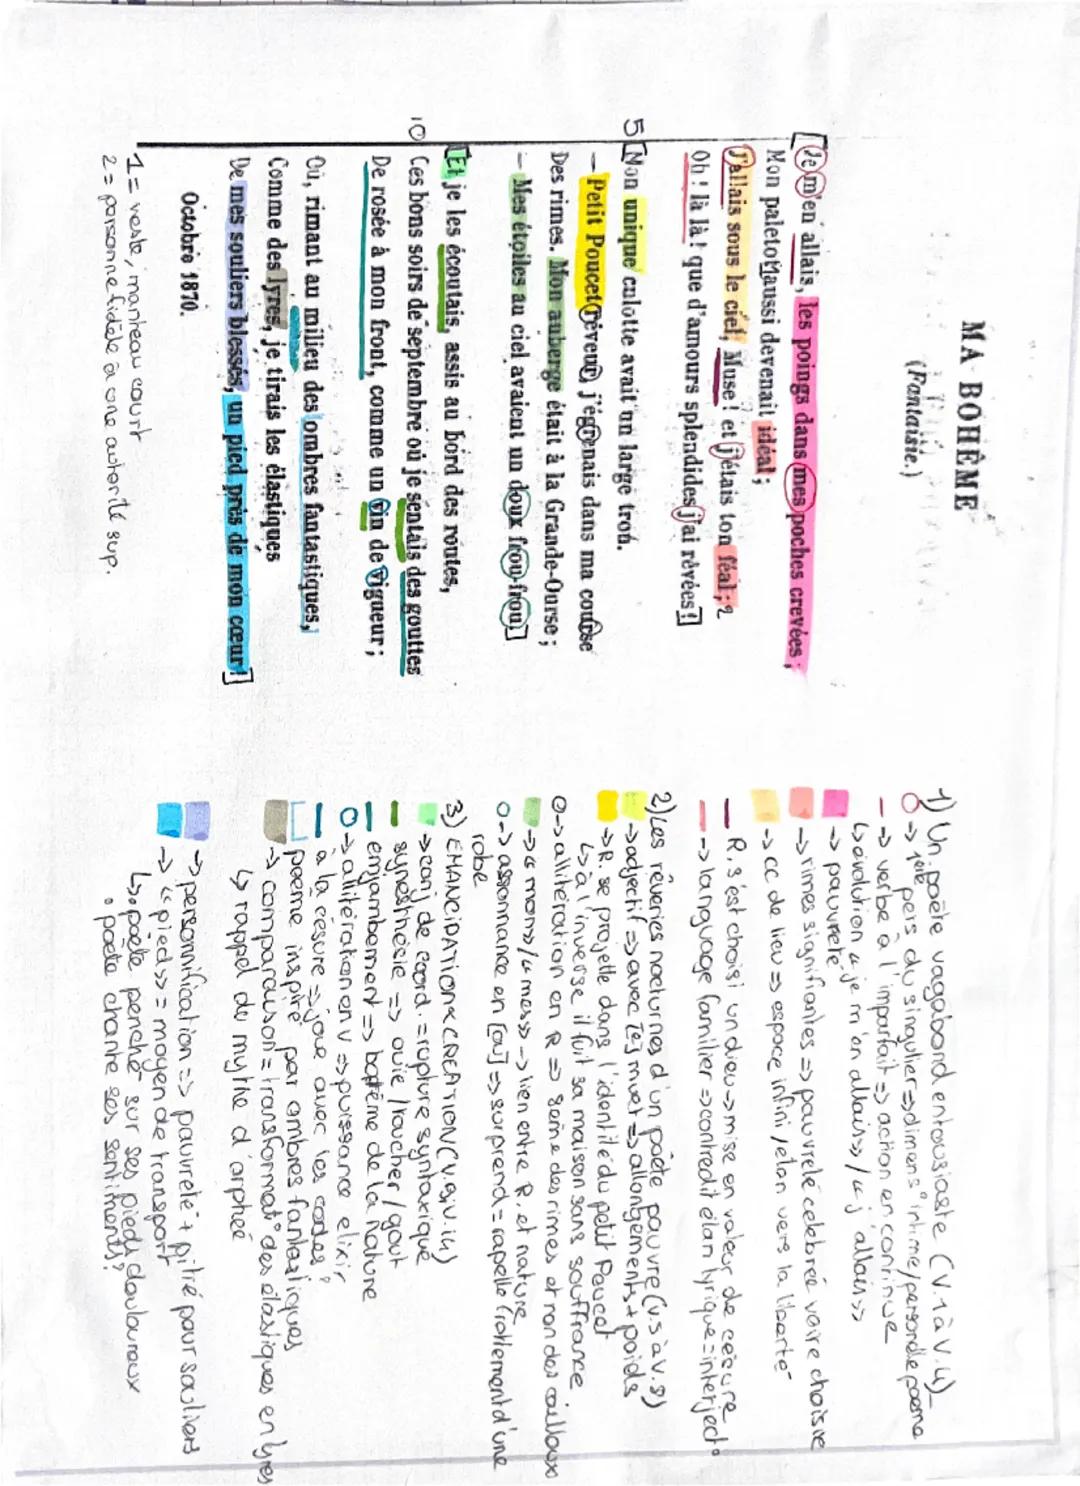 MA BOHÊME
(Fantaisie.)
Je m'en allais, les poings dans mes poches crevées ;
Mon paletot aussi devenait idéal ;
J'allais sous le ciel, Muse ! et j'étais ton féal ; 2
Oh ! là là ! que d'amours splendides j'ai rêvées !
5 Mon unique culotte avait un large trou.
– Petit Poucet rêveur, j'égrenais dans ma course
Des rimes. Mon auberge était à la Grande-Ourse ;
– Mes étoiles au ciel avaient un doux frou-frou
Et je les écoutais, assis au bord des routes,
10 Ces bons soirs de septembre où je sentais des gouttes
De rosée à mon front, comme un vin de vigueur ;
Où, rimant au milieu des ombres fantastiques,
Comme des lyres, je tirais les élastiques
De mes souliers blessés, un pied près de mon cœur !
Octobre 1870.
1 = veste, manteau court
2 = personne fidèle à une autorité sup.
1) Un poète vagabond entousiaste (v.1 à v.4)
O -> 1ère pers du singulier => dimens° intime/personelle poème
- -> verbe à l'imparfait => action en continue
↳ évolution « je m'en allais » / « j'allais »
-> pauvreté
-> rimes signifiantes => pauvreté célébrée voire choisie
-> cc de lieu => espace infini, élan vers la liberté
R. s'est choisi un dieu -> mise en valeur de césure
-> languague familier => contredit élan lyrique = interject°
2) Les rêveries nocturnes d'un poète pauvre (v.5 à v.8)
-> adjectif => avec [e] muet => allongements + poids
-> R. se projette dans l'identité du petit Poucet
↳ à l'inverse il fuit sa maison sans souffrance
O -> allitération en R => sème des rimes et non des cailloux
-> « mon » / « mes » -> lien entre R. et nature
O -> assonnance en [ou] => surprend = rapelle frottement d'une
robe
3) EMANCIPATION & CREATION (v.9, v.14)
-> conj de coord. = rupture syntaxique
synesthésie => ouïe / toucher / gout
enjambement => baptême de la nature
O -> allitération en v => puissance elixir
à la césure => joue avec les codes ?
poème inspiré par ombres fantastiques
-> comparaison = transformat° des élastiques en lyres
↳ rappel du mythe d'orphée
-> personnification => pauvreté + pitié pour souliers
-> « pied » = moyen de transport
↳ • poète penché sur ses pieds douloureux
• poète chante ses sentiments ?